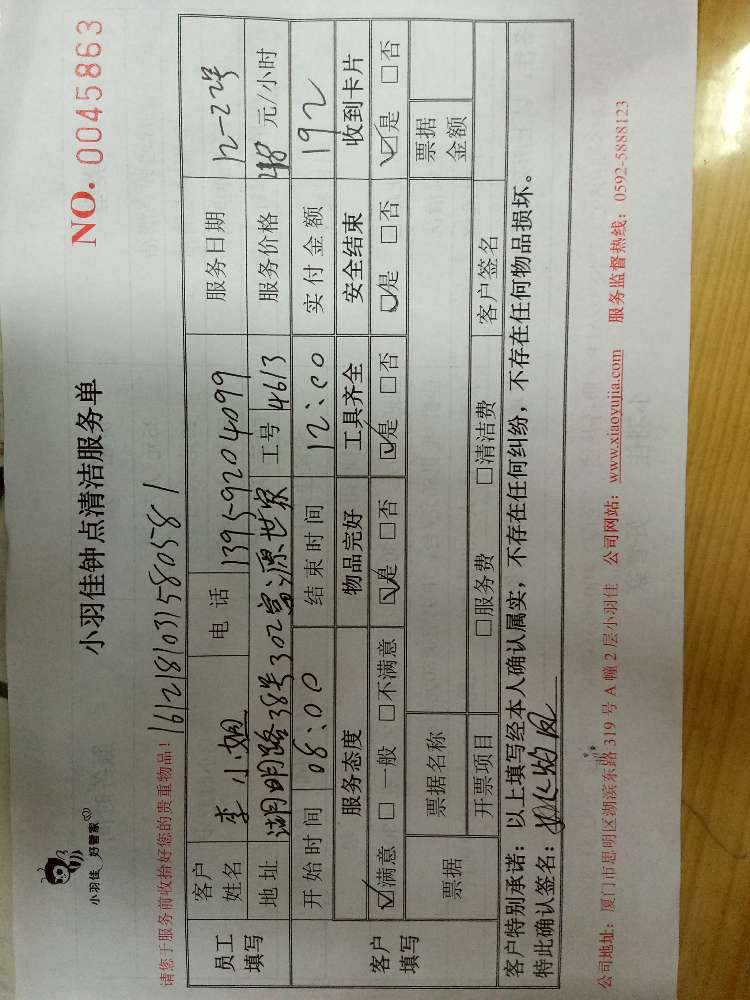 小羽佳 好管家
小羽佳钟点清洁服务单
NO. 0045863
请您于服务前收拾好您的贵重物品！ 16121810315805 81
员工填写 客户姓名 李小姐 电话 13959204099 服务日期 12-22号
地址 湖明路38号302富源世家 工号 4613 服务价格 48 元/小时
客户填写 开始时间 08:00 结束时间 12:00 实付金额 192
服务态度 物品完好 工具齐全 安全结束 收到卡片
☑满意 □一般 □不满意 ☑是 □否 ☑是 □否 ☑是 □否 ☑是 □否
票据 票据名称 票据金额
开票项目 □服务费 □清洁费 客户签名
客户特别承诺：以上填写经本人确认属实，不存在任何纠纷，不存在任何物品损坏。
特此确认签名：
公司地址：厦门市思明区湖滨东路 319 号 A 幢 2 层小羽佳 公司网站：www.xiaoyujia.com 服务监督热线：0592-5888123